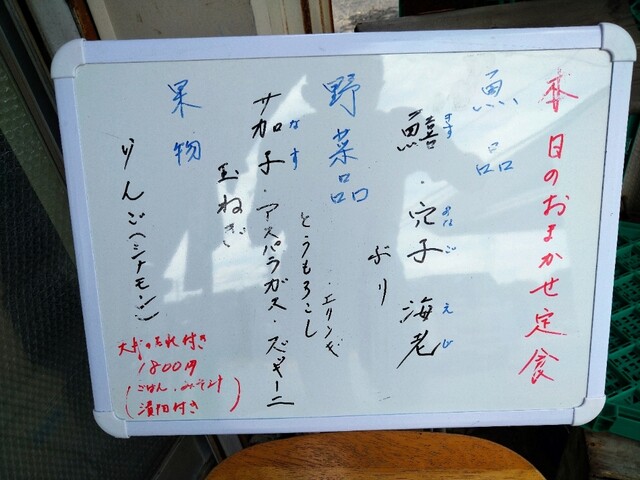 本日のおまかせ定食
魚品
きす あなご えび
鱚・穴子 海老
ぶり
野菜品
・エリンギ
とうもろこし
なす
茄子・アスパラガス・ズギーニ
玉ねぎ
果物
りんご(シナモン)
たれ付き
1800円
(ごはん、みそ汁
漬物付き)